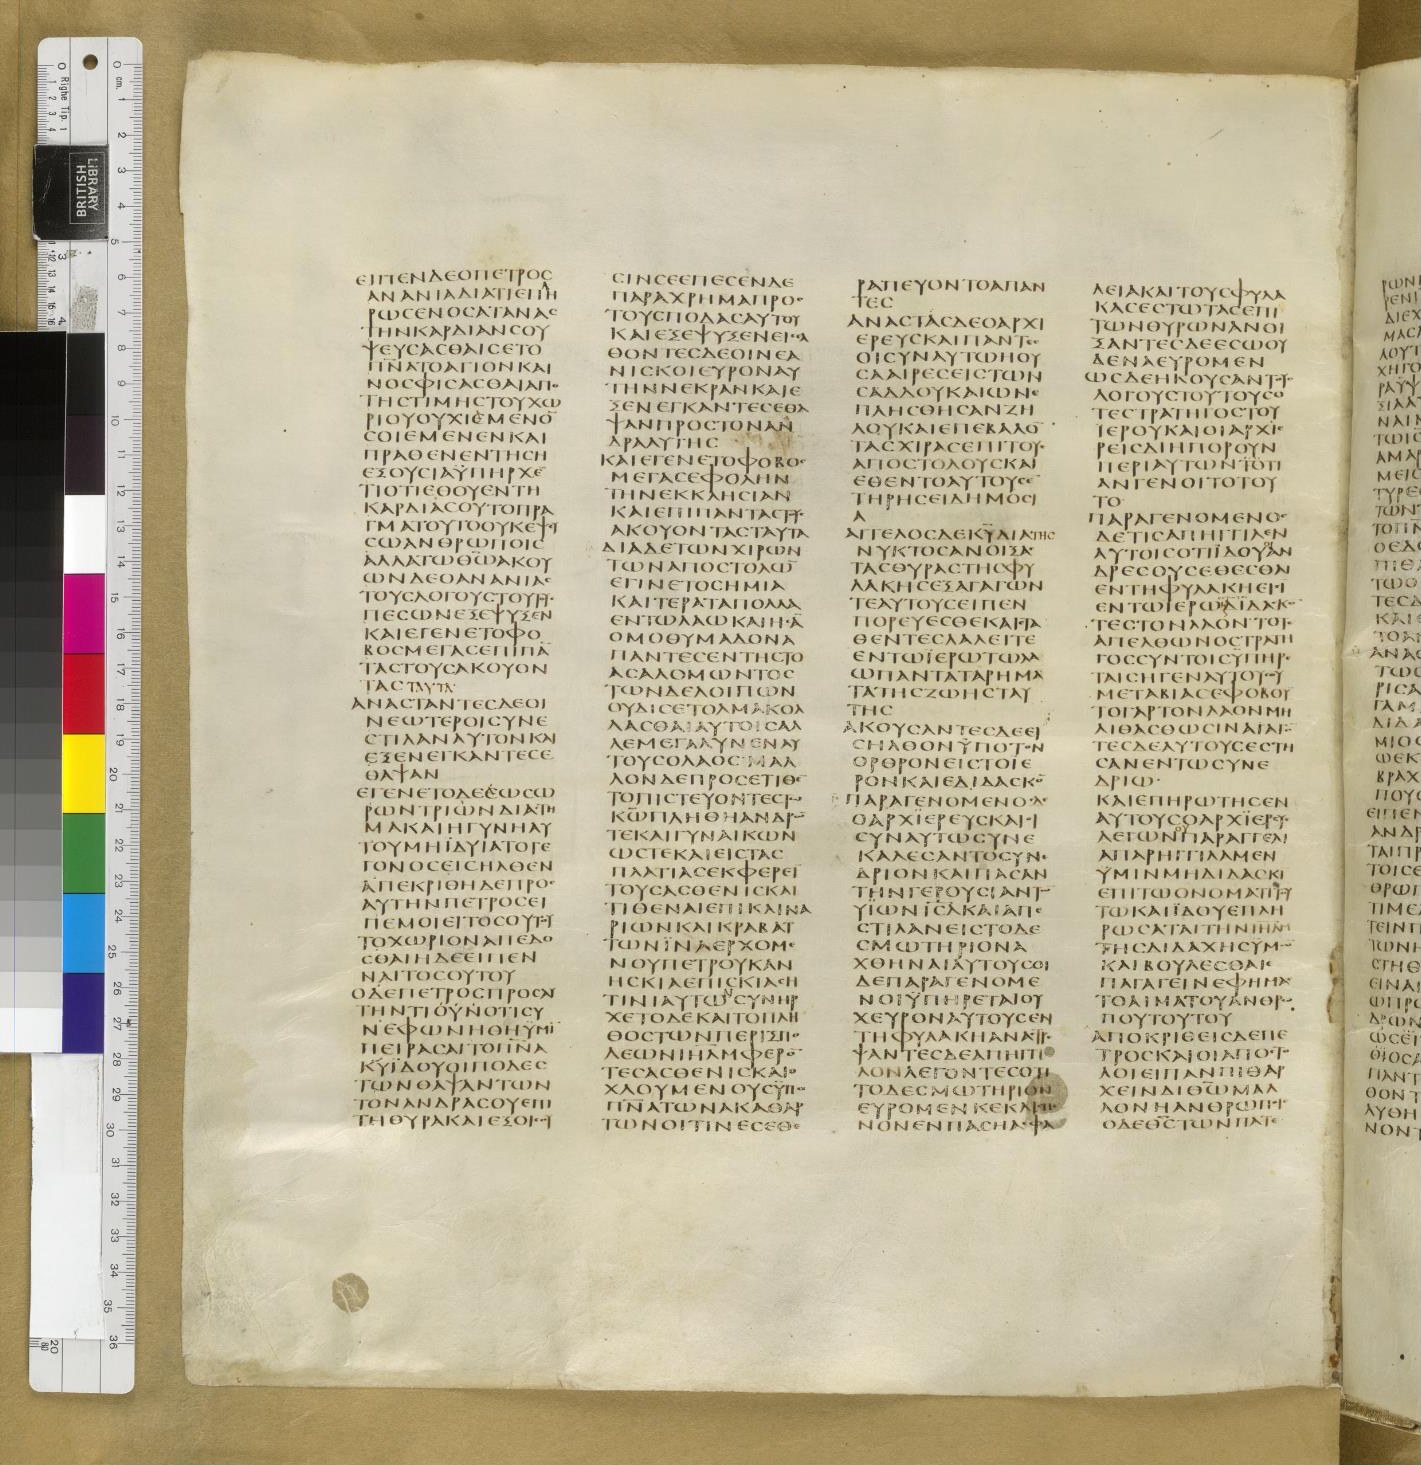 ΕΙΠΕΝΔΕΟΠΕΤΡΟΣ
ΑΝΑΝΙΑΔΙΑΤΙΕΠΗ
ΡΩΣΕΝΟΣΑΤΑΝΑΣ
ΤΗΝΚΑΡΔΙΑΝΣΟΥ
ΨΕΥΣΑΣΘΑΙΣΕΤΟ
Π̅Ν̅Α̅ΤΟΑΓΙΟΝΚΑΙ
ΝΟΣΦΙΣΑΣΘΑΙΑΠΟ
ΤΗΣΤΙΜΗΣΤΟΥΧΩ
ΡΙΟΥΟΥΧΙΕΜΕΝΟ̅
ΣΟΙΕΜΕΝΕΝΚΑΙ
ΠΡΑΘΕΝΕΝΤΗΣΗ
ΕΞΟΥΣΙΑΫΠΗΡΧΕ̅
ΤΙΟΤΙΕΘΟΥΕΝΤΗ
ΚΑΡΔΙΑΣΟΥΤΟΠΡΑ
ΓΜΑΤΟΥΤΟΟΥΚΕΨΕΥ
ΣΩΑΝΘΡΩΠΟΙΣ
ΑΛΛΑΤΩΘ̅Ω̅ΑΚΟΥ
ΩΝΔΕΟΑΝΑΝΙΑΣ
ΤΟΥΣΛΟΓΟΥΣΤΟΥΤΟΥΣ
ΠΕΣΩΝΕΞΕΨΥΞΕΝ
ΚΑΙΕΓΕΝΕΤΟΦΟ
ΒΟΣΜΕΓΑΣΕΠΙΠΑ̅
ΤΑΣΤΟΥΣΑΚΟΥΟΝ
ΤΑΣΤΑΥΤΑ
ΑΝΑΣΤΑΝΤΕΣΔΕΟΙ
ΝΕΩΤΕΡΟΙΣΥΝΕ
ΣΤΙΛΑΝΑΥΤΟΝΚΑΙ
ΕΞΕΝΕΓΚΑΝΤΕΣΕ
ΘΑΨΑΝ
ΕΓΕΝΕΤΟΔΕΕΩΣΩ
ΡΩΝΤΡΙΩΝΔΙΑΣΤΗ
ΜΑΚΑΙΗΓΥΝΗΑΥ
ΤΟΥΜΗΪΔΥΙΑΤΟΓΕ
ΓΟΝΟΣΕΙΣΗΛΘΕΝ
ΑΠΕΚΡΙΘΗΔΕΠΡΟΣ
ΑΥΤΗΝΠΕΤΡΟΣΕΙ
ΠΕΜΟΙΕΙΤΟΣΟΥΤΟΥ
ΤΟΧΩΡΙΟΝΑΠΕΔΟ
ΣΘΑΙΗΔΕΕΙΠΕΝ
ΝΑΙΤΟΣΟΥΤΟΥ
ΟΔΕΠΕΤΡΟΣΠΡΟΣΑΥ
ΤΗΝΤΙΟΥΝΟΤΙΣΥ
ΝΕΦΩΝΗΘΗΫΜΙ̅
ΠΕΙΡΑΣΑΙΤΟΠ̅Ν̅Α̅
Κ̅Υ̅ΪΔΟΥΟΙΠΟΔΕΣ
ΤΩΝΘΑΨΑΝΤΩΝ
ΤΟΝΑΝΔΡΑΣΟΥΕΠΙ
ΤΗΘΥΡΑΚΑΙΕΞΟΙΣΟΥ
ΣΙΝΣΕΕΠΕΣΕΝΔΕ
ΠΑΡΑΧΡΗΜΑΠΡΟΣ
ΤΟΥΣΠΟΔΑΣΑΥΤΟΥ
ΚΑΙΕΞΕΨΥΞΕΝΕΙΣΕΛ
ΘΟΝΤΕΣΔΕΟΙΝΕΑ
ΝΙΣΚΟΙΕΥΡΟΝΑΥ
ΤΗΝΝΕΚΡΑΝΚΑΙΕ
ΞΕΝΕΓΚΑΝΤΕΣΕΘΑ
ΨΑΝΠΡΟΣΤΟΝΑΝ
ΔΡΑΑΥΤΗΣ
ΚΑΙΕΓΕΝΕΤΟΦΟΒΟΣ
ΜΕΓΑΣΕΦΟΛΗΝ
ΤΗΝΕΚΚΛΗΣΙΑΝ
ΚΑΙΕΠΙΠΑΝΤΑΣΤΟΥΣ
ΑΚΟΥΟΝΤΑΣΤΑΥΤΑ
ΔΙΑΔΕΤΩΝΧΙΡΩΝ
ΤΩΝΑΠΟΣΤΟΛΩ̅
ΕΓΙΝΕΤΟΣΗΜΙΑ
ΚΑΙΤΕΡΑΤΑΠΟΛΛΑ
ΕΝΤΩΛΑΩΚΑΙΗΣΑ̅
ΟΜΟΘΥΜΑΔΟΝΑ
ΠΑΝΤΕΣΕΝΤΗΣΤΟ
ΑΣΑΛΟΜΩΝΤΟΣ
ΤΩΝΔΕΛΟΙΠΩΝ
ΟΥΔΙΣΕΤΟΛΜΑΚΟΛ
ΛΑΣΘΑΙΑΥΤΟΙΣΑΛ
ΛΕΜΕΓΑΛΥΝΕΝΑΥ
ΤΟΥΣΟΛΑΟΣΜΑΛ
ΛΟΝΔΕΠΡΟΣΕΤΙΘΕ̅
ΤΟΠΙΣΤΕΥΟΝΤΕΣΤΩ
Κ̅Ω̅ΠΛΗΘΗΑΝΔΡΩ̅
ΤΕΚΑΙΓΥΝΑΙΚΩΝ
ΩΣΤΕΚΑΙΕΙΣΤΑΣ
ΠΛΑΤΙΑΣΕΚΦΕΡΕΙ̅
ΤΟΥΣΑΣΘΕΝΙΣΚΑΙ
ΤΙΘΕΝΑΙΕΠΙΚΛΙΝΑ
ΡΙΩΝΚΑΙΚΡΑΒΑΤ
ΤΩΝΪΝΑΕΡΧΟΜΕ
ΝΟΥΠΕΤΡΟΥΚΑΝ
ΗΣΚΙΑΕΠΙΣΚΙΑΣΗ
ΤΙΝΙΑΥΤΩΝΣΥΝΗΡ
ΧΕΤΟΔΕΚΑΙΤΟΠΛΗ
ΘΟΣΤΩΝΠΕΡΙΞΠΟ
ΛΕΩΝΙΗΛΜΦΕΡΟ̅
ΤΕΣΑΣΘΕΝΙΣΚΑΙΟ
ΧΛΟΥΜΕΝΟΥΣΫΠΟ
Π̅Ν̅Α̅ΤΩΝΑΚΑΘΑΡ
ΤΩΝΟΙΤΙΝΕΣΕΘΕ
ΡΑΠΕΥΟΝΤΟΑΠΑΝ
ΤΕΣ
ΑΝΑΣΤΑΣΔΕΟΑΡΧΙ
ΕΡΕΥΣΚΑΙΠΑΝΤΕΣ
ΟΙΣΥΝΑΥΤΩΗΟΥ
ΣΑΑΙΡΕΣΕΙΣΤΩΝ
ΣΑΔΔΟΥΚΑΙΩΝΕ
ΠΛΗΣΘΗΣΑΝΖΗ
ΛΟΥΚΑΙΕΠΕΒΑΛΟ̅
ΤΑΣΧΙΡΑΣΕΠΙΤΟΥΣ
ΑΠΟΣΤΟΛΟΥΣΚΑΙ
ΕΘΕΝΤΟΑΥΤΟΥΣΕ̅
ΤΗΡΗΣΕΙΔΗΜΟΣΙ
Α
ΑΓΓΕΛΟΣΔΕΚ̅Υ̅ΔΙΑΤΗΣ
ΝΥΚΤΟΣΑΝΟΙΞΑΣ
ΤΑΣΘΥΡΑΣΤΗΣΦΥ
ΛΑΚΗΣΕΞΑΓΑΓΩΝ
ΤΕΑΥΤΟΥΣΕΙΠΕΝ
ΠΟΡΕΥΕΣΘΕΚΑΙΣΤΑ
ΘΕΝΤΕΣΛΑΛΕΙΤΕ
ΕΝΤΩΪΕΡΩΤΩΛΑ
ΩΠΑΝΤΑΤΑΡΗΜΑ
ΤΑΤΗΣΖΩΗΣΤΑΥ
ΤΗΣ
ΑΚΟΥΣΑΝΤΕΣΔΕΕΙΣ
ΣΗΛΘΟΝΫΠΟΤΟΝ
ΟΡΘΡΟΝΕΙΣΤΟΙΕ
ΡΟΝΚΑΙΕΔΙΔΑΣΚΟ̅
ΠΑΡΑΓΕΝΟΜΕΝΟΣΔΕ
ΟΑΡΧΪΕΡΕΥΣΚΑΙΟΙ
ΣΥΝΑΥΤΩΣΥΝΕ
ΚΑΛΕΣΑΝΤΟΣΥΝΕ
ΔΡΙΟΝΚΑΙΠΑΣΑΝ
ΤΗΝΓΕΡΟΥΣΙΑΝΤΩ̅
ΥΪΩΝΙ̅Σ̅Λ̅ΚΑΙΑΠΕ
ΣΤΙΛΑΝΕΙΣΤΟΔΕ
ΣΜΩΤΗΡΙΟΝΑ
ΧΘΗΝΑΙΑΥΤΟΥΣΟΙ
ΔΕΠΑΡΑΓΕΝΟΜΕ
ΝΟΙΫΠΗΡΕΤΑΙΟΥ
ΧΕΥΡΟΝΑΥΤΟΥΣΕΝ
ΤΗΦΥΛΑΚΗΑΝΑΣΤΡΕ
ΨΑΝΤΕΣΔΕΑΠΗΓΓΙ
ΛΟΝΛΕΓΟΝΤΕΣΟΤΙ
ΤΟΔΕΣΜΩΤΗΡΙΟΝ
ΕΥΡΟΜΕΝΚΕΚΛΙΣΜΕ
ΝΟΝΕΝΠΑΣΗΑΣΦΑ
ΛΕΙΑΚΑΙΤΟΥΣΦΥΛΑ
ΚΑΣΕΣΤΩΤΑΣΕΠΙ
ΤΩΝΘΥΡΩΝΑΝΟΙ
ΞΑΝΤΕΣΔΕΕΣΩΟΥ
ΔΕΝΑΕΥΡΟΜΕΝ
ΩΣΔΕΗΚΟΥΣΑΝΤΟΥΣ
ΛΟΓΟΥΣΤΟΥΤΟΥΣΟ
ΤΕΣΤΡΑΤΗΓΟΣΤΟΥ
ΪΕΡΟΥΚΑΙΟΙΑΡΧΙΕ
ΡΕΙΣΔΙΗΠΟΡΟΥΝ
ΠΕΡΙΑΥΤΩΝΤΟΤΙ
ΑΝΓΕΝΟΙΤΟΤΟΥ
ΤΟ
ΠΑΡΑΓΕΝΟΜΕΝΟΣ
ΔΕΤΙΣΑΠΗΓΓΙΛΕΝ
ΑΥΤΟΙΣΟΤΙΪΔΟΥΟΙΑΝ
ΔΡΕΣΟΥΣΕΘΕΣΘΑΙ
ΕΝΤΗΦΥΛΑΚΗΕΙΣΙ
ΕΝΤΩΙΕΡΩΔΙΔΑΣΚΟ̅
ΤΕΣΤΟΝΛΑΟΝΤΟΤΕ
ΑΠΕΛΘΩΝΟΣΤΡΑΤΗ
ΓΟΣΣΥΝΤΟΙΣΥΠΗΡΕ
ΤΑΙΣΗΓΕΝΑΥΤΟΥΣΟΥ
ΜΕΤΑΒΙΑΣΕΦΟΒΟΥ̅
ΤΟΓΑΡΤΟΝΛΑΟΝΜΗ
ΛΙΘΑΣΘΩΣΙΝΑΓΑΓΟ̅
ΤΕΣΔΕΑΥΤΟΥΣΕΣΤΗ
ΣΑΝΕΝΤΩΣΥΝΕ
ΔΡΙΩ
ΚΑΙΕΠΗΡΩΤΗΣΕΝ
ΑΥΤΟΥΣΟΑΡΧΪΕΡΕΥΣ
ΛΕΓΩΝΟΥΠΑΡΑΓΓΕΛΙ
ΑΠΑΡΗΓΓΙΛΑΜΕΝ
ΫΜΙΝΜΗΔΙΔΑΣΚΙ̅
ΕΠΙΤΩΟΝΟΜΑΤΙΤΟΥ
ΤΩΚΑΙΪΔΟΥΕΠΛΗ
ΡΩΣΑΤΑΙΤΗΝΙΗΛΜ
ΤΗΣΔΙΔΑΧΗΣΥΜΩ̅
ΚΑΙΒΟΥΛΕΣΘΑΙΕ
ΠΑΓΑΓΕΙΝΕΦΗΜΑΣ
ΤΟΑΙΜΑΤΟΥΑΝΘΡΩ
ΠΟΥΤΟΥΤΟΥ
ΑΠΟΚΡΙΘΕΙΣΔΕΠΕ
ΤΡΟΣΚΑΙΟΙΑΠΟΣΤΟ
ΛΟΙΕΙΠΑΝΠΙΘΑΡ
ΧΕΙΝΔΙΘ̅Ω̅ΜΑΛ
ΛΟΝΗΑΝΘΡΩΠΟΙΣ
ΟΔΕΘ̅Σ̅ΤΩΝΠΑΤΕ